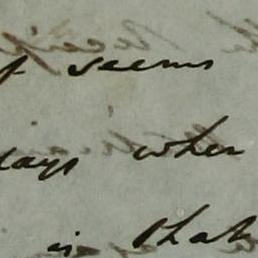 seems
days when
is that